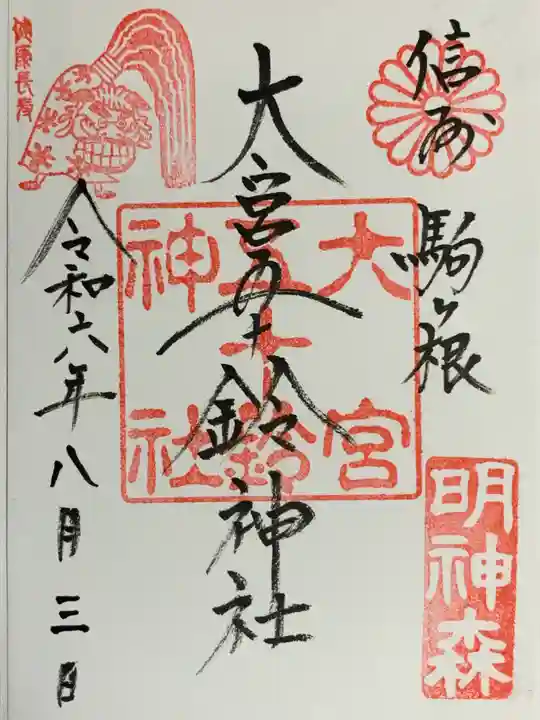 信州 駒ヶ根
明神森
大宮五十鈴神社
大宮
五十鈴
神社
令和六年八月三日
健康長寿